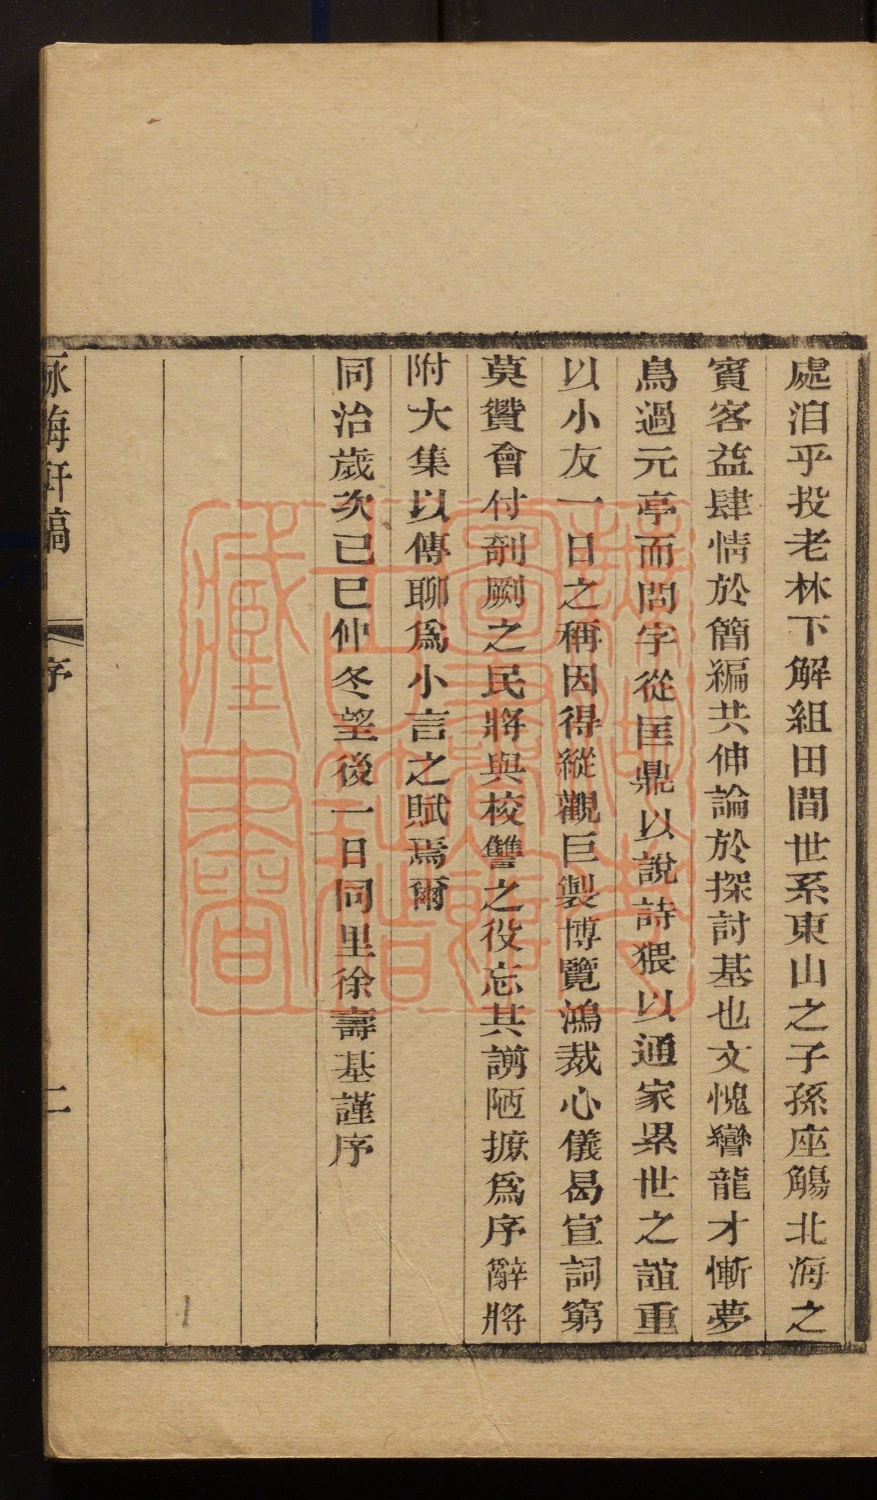 處洎乎投老林下解組田間世系東山之子孫座觴北海之
賓客益肆情於簡編共伸論於探討基也文愧彎龍才慚夢
鳥過元亭而問字從匡鼎以說詩猥以通家累世之誼重
以小友一日之稱因得縱觀巨製博覽鴻裁心儀曷宣詞窮
莫贊會付剞劂之民將與校讐之役忘其謭陋摭爲序辭將
附大集以傳聊爲小言之賦焉爾
同治歲次己巳仲冬望後一日同里徐壽基謹序
海軒稿
序
二